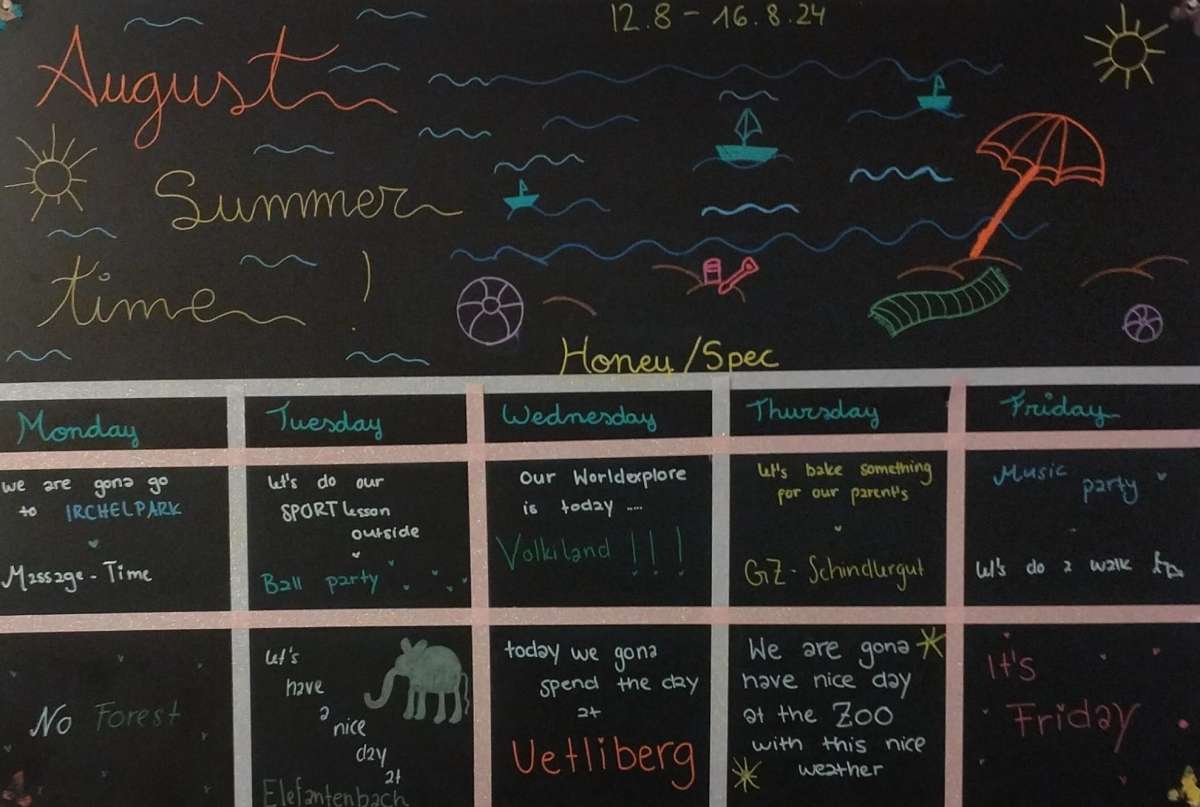 12.8 - 16.8.24
August
Summer
time !
Honey/Spec
Monday
Tuesday
Wednesday
Thursday
Friday
we are gona go
to IRCHELPARK
Massage-Time
Let's do our
SPORT lesson
outside
Ball party
Our Worldexplore
is today ....
Volkiland !!!
Let's bake something
for our parent's
GZ-Schindlergut
Music
party
Let's do a walk
No Forest
Let's
have
a
nice
day
at
Elefantenbach
today we gona
spend the day
at
Uetliberg
We are gona
have nice day
at the ZOO
with this nice
weather
It's
Friday